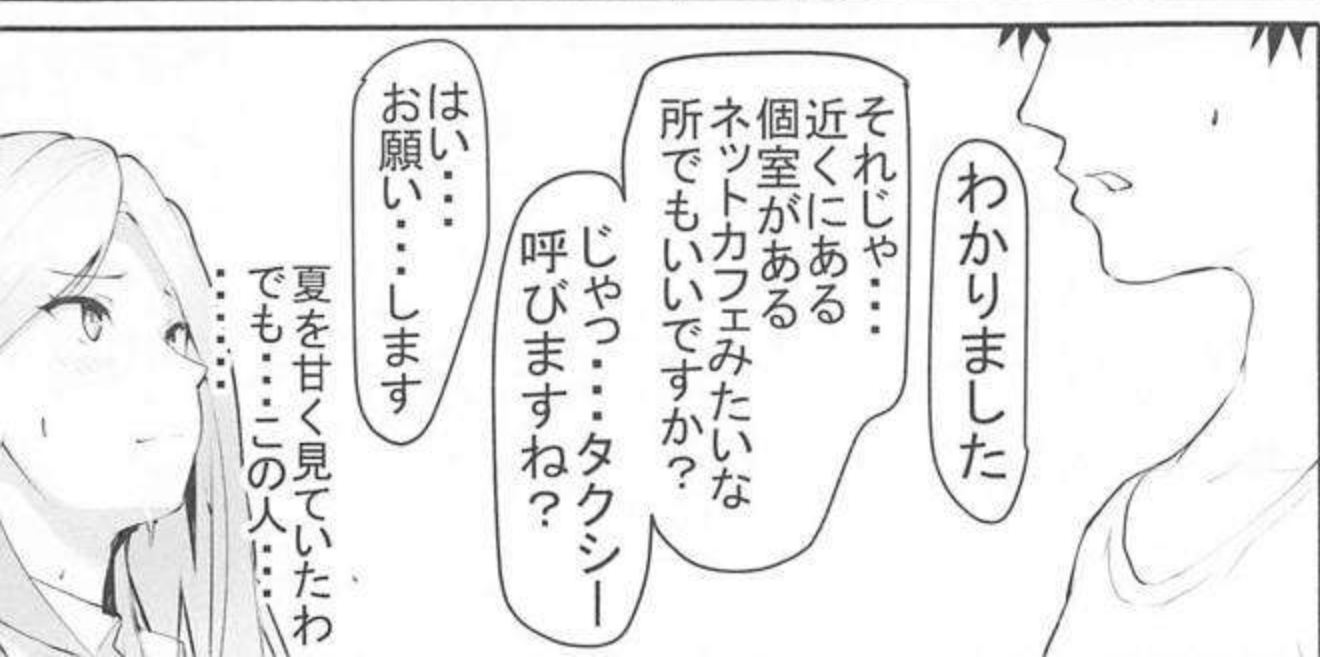 わかりました
それじゃ・・・
近くにある
個室がある
ネットカフェみたいな
所でもいいですか？
じゃっ・・・タクシー
呼びますね？
はい・・・
お願い・・・します
夏を甘く見ていたわ
でも・・・この人・・・
・・・・・・